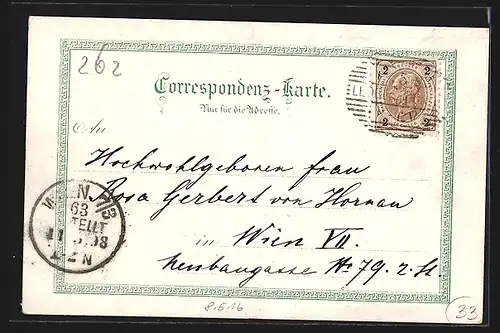 262
Correspondenz-Karte.
Nur für die Adresse.
LE
2 2
2 2
An
Hochwohlgeboren frau
Rosa Gerbert von Hornau
in Wien VII.
Neubaugasse No. 79. 2. St.
WIEN 7/3
63
BESTELLT
98
1-2 N
8.5.16
33